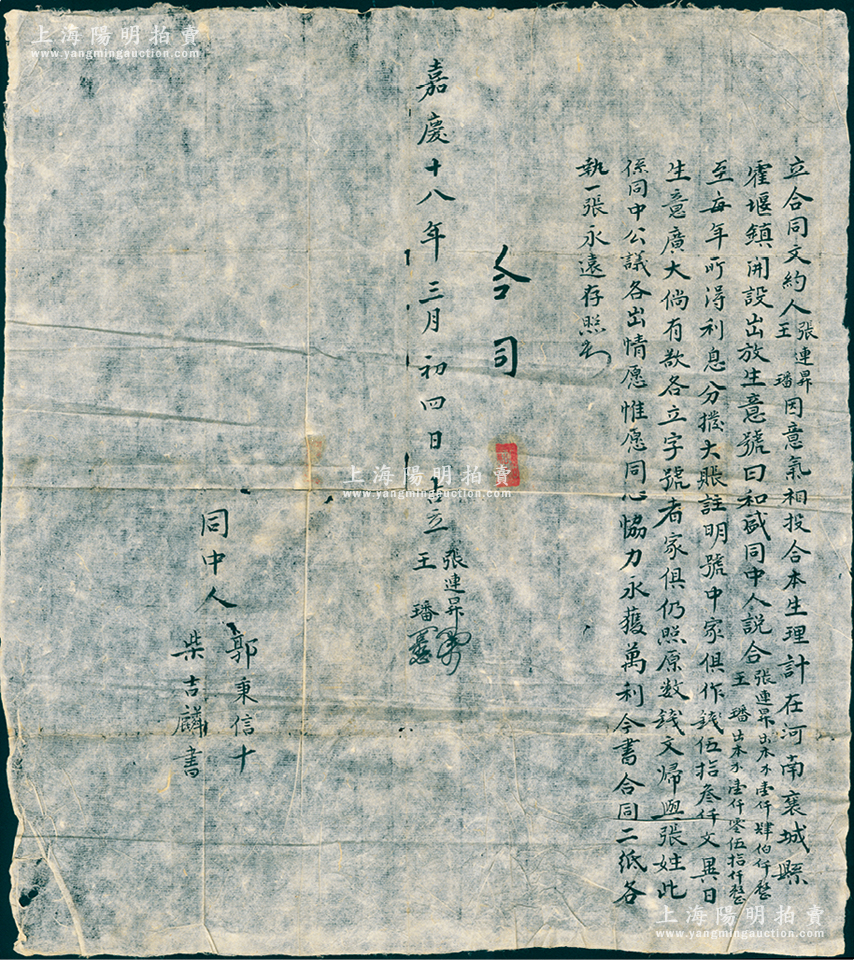 立合同文約人張連昇王璠因意氣相投合本生理計在河南襄城縣
霍堰鎮開設出放生意號曰和盛同中人説合張連昇出本錢壹仟肆伯仟整王璠出本錢壹仟零伍拾仟整
至每年所得利息分撥大賬註明號中家俱作錢伍拾叁仟文異日
生意廣大倘有欲各立字號者家俱仍照原数錢文歸與張姓此
係同中公議各出情愿惟愿同心協力永獲萬利今書合同二紙各
執一張永遠存照
合同
嘉慶十八年三月初四日吉立 張連昇 王璠
同中人 郭秉信十
柴吉麟書
上海陽明拍賣
www.yangmingauction.com
上海陽明拍賣
www.yangmingauction.com
上海陽明拍賣
www.yangmingauction.com